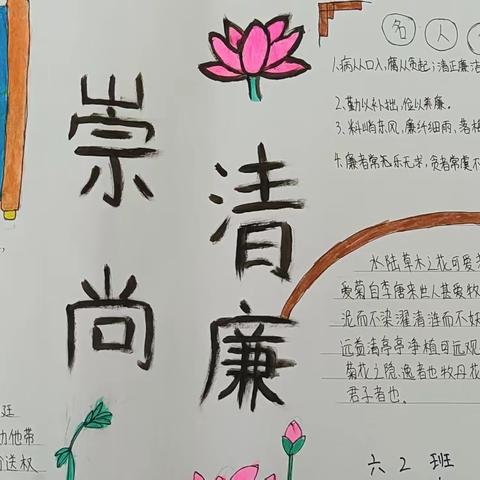 崇尚
清廉
名人
1.病从口入,腐从贪起;清正廉洁
2.勤以补拙,俭以养廉。
3、料峭东风,廉纤细雨,落梅
4.廉者常乐无求,贪者常虞不
水陆草木之花可爱
爱菊自李唐来世人甚爱牡
泥而不染濯清涟而不妖
远益清亭亭净植可远观
菊花之隐逸者也牡丹花
君子者也。
廷
他带
送权
六 2 班